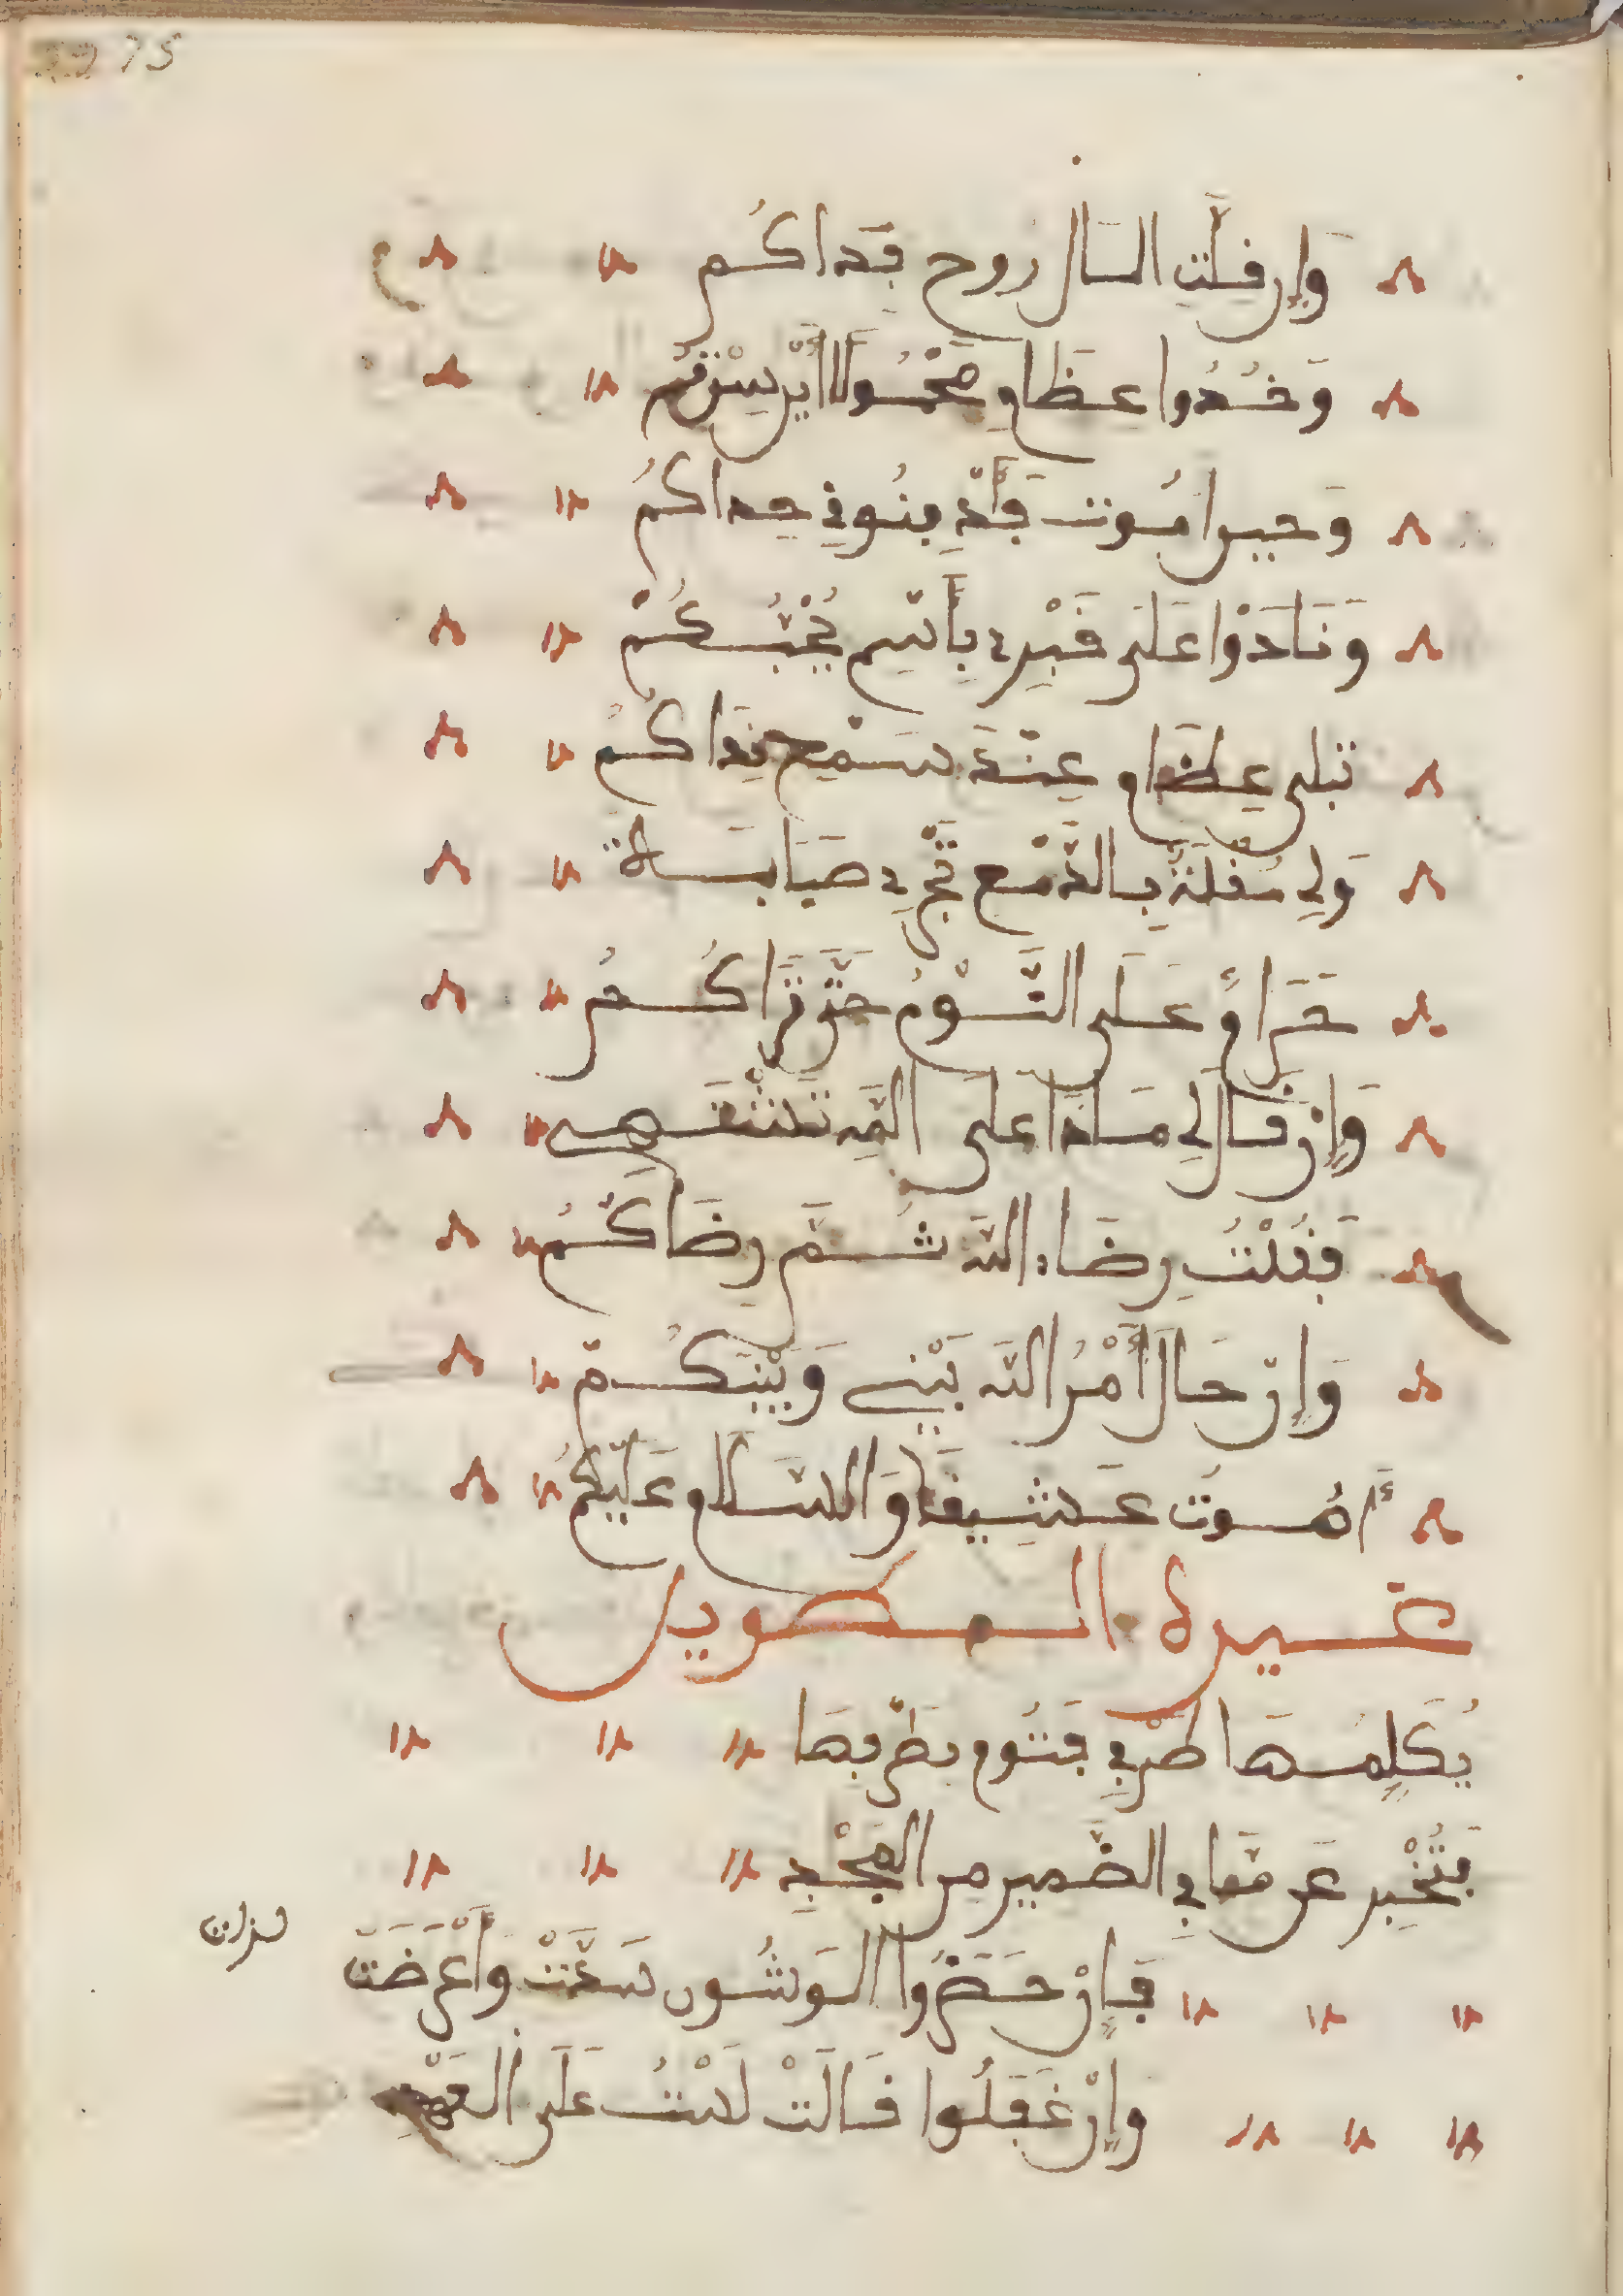 75
وَإِن قِلَّتِ المَال رُوحِ فِدَاكُم
وَخُدُوا عِظَامِ مَحْمُولًا أَيْنَ سِرْتُم
وَحِين امُوت فَأَدْفِنُونِي حِدَاكُمُ
وَنَادَوْا عَلَى قَبْرِي بِأَسْمِ يُجِبُكُمْ
تبلى عِظَامِ عِنْدَ سَمْعِ نِدَاكُمُ
وَلِي مُقْلَةٌ بِالدَّمْعِ تَجْرِي صَبَابَة
حَرَامٌ عَلَى النَّوْمُ حَتَّى تَرَاكُمُ
وَإِنْ قَال لِي مَاذَا عَلَى اللَّهِ تَشْتَهِي
فَقُلْتُ رِضَاءَ اللَّهِ ثُمَّ رِضَاكُمُ
وَإِنْ حَالَ أَمْرُ اللَّهِ بَيْنِي وَبَيْنَكُم
أَمُوت عَشِيقًا وَالسَّلَام عَلَيْكُم
غيره الطويل
يُكَلِّمُهَا طَرْفِي فَتُوم بِطَرْفِهَا
فَتُخْبِر عَن مَّا فِي الضَّمِير مِن الوَجْدِ
فَإِنْ حَضَرُوا الوَشُون صَدَّتْ وَأَعْرَضَتْ
وَإِنْ غَفَلُوا قَالَتْ لَسْتُ عَلَى العَهْدِ